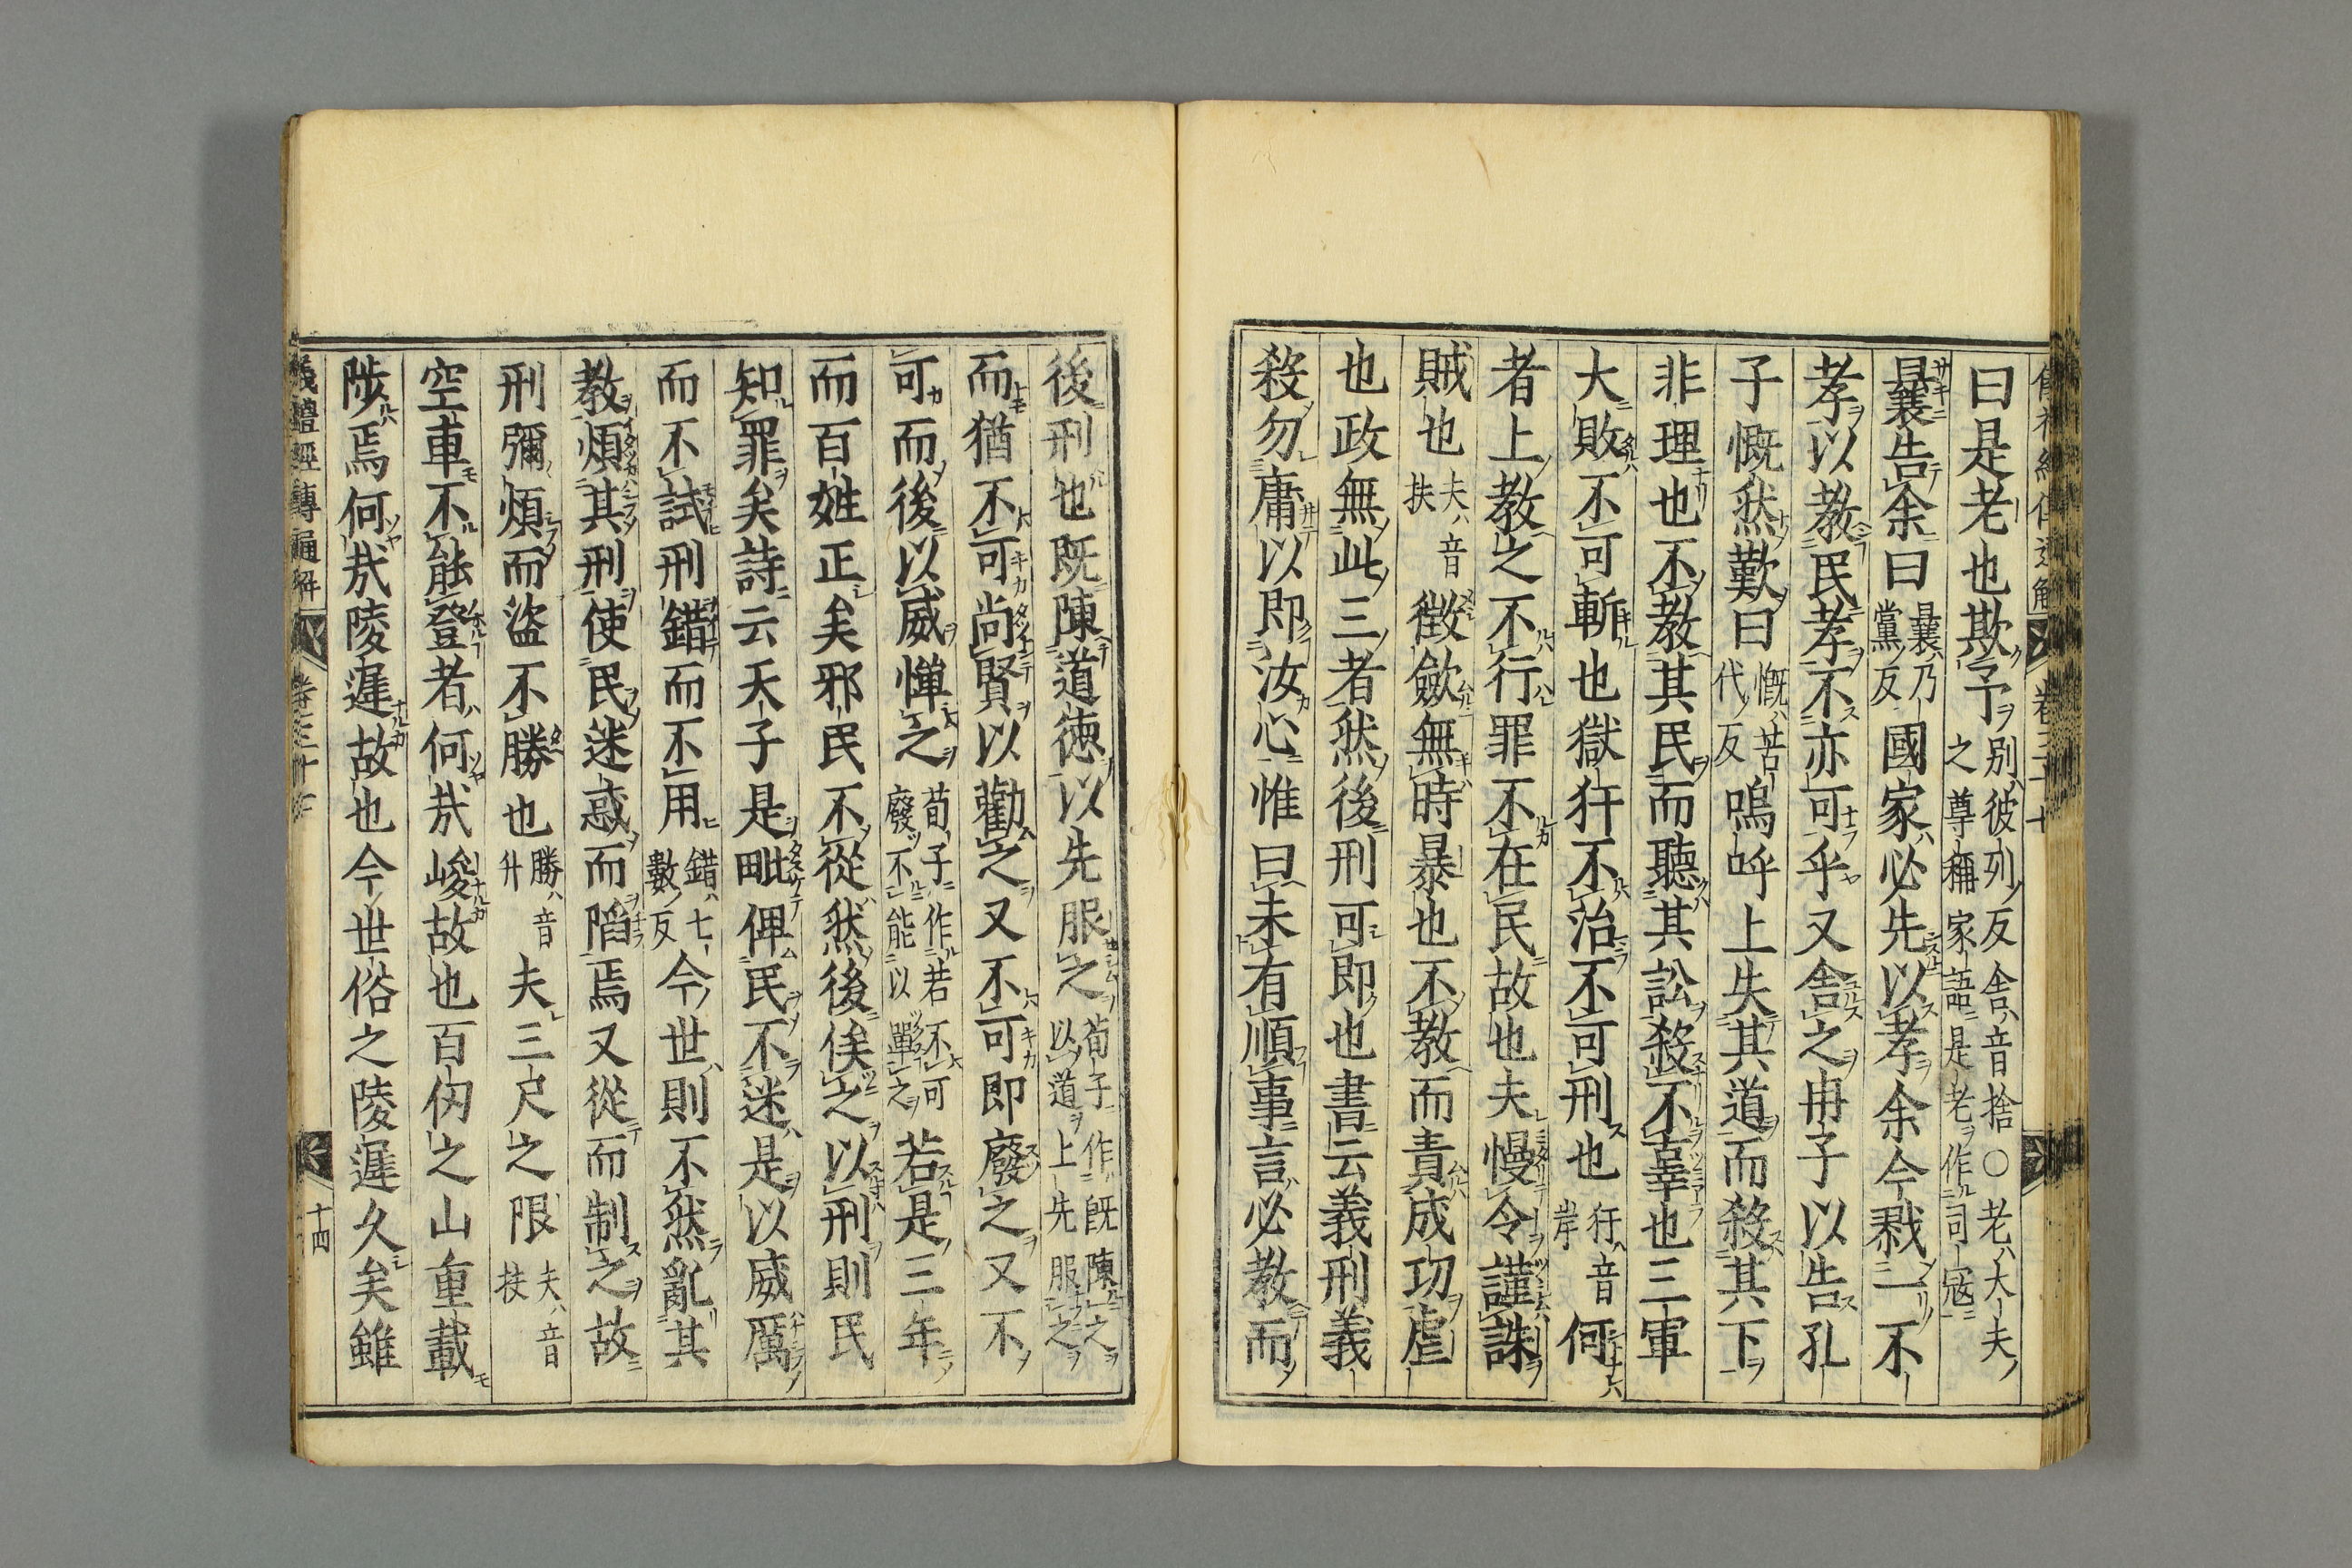 曰是老也欺予別彼列反舎音捨○老大夫之尊稱家語是老作司寇
曩告余曰曩乃黨反國家必先以孝余今戮一不
孝以教民孝不亦可乎又舍之冉子以告孔
子慨然歎曰慨苦代反嗚呼上失其道而殺其下
非理也不教其民而聽其訟殺不辜也三軍
大敗不可斬也獄犴不治不可刑也犴音岸何
者上教之不行罪不在民故也夫慢令謹誅
賊也夫音扶徴歛無時暴也不教而責成功虐
也政無此三者然後刑可即也書云義刑義
殺勿庸以即汝心惟曰未有順事言必教而
後刑也既陳道徳以先服之荀子作既陳之以道上先服之
而猶不可尚賢以勸之又不可即廢之又不
可而後以威憚之荀子作若不可廢不能以單之若是三年
而百姓正矣邪民不從然後俟之以刑則民
知罪矣詩云天子是毗俾民不迷是以威厲
而不試刑錯而不用錯七數反今世則不然亂其
教煩其刑使民迷惑而陷焉又從而制之故
刑彌煩而盜不勝也勝音升夫三尺之限夫音扶
空車不能登者何㢤峻故也百仭之山重載
陟焉何㢤陵遲故也今世俗之陵遲久矣雖
儀禮經傳通解
卷三十
十四